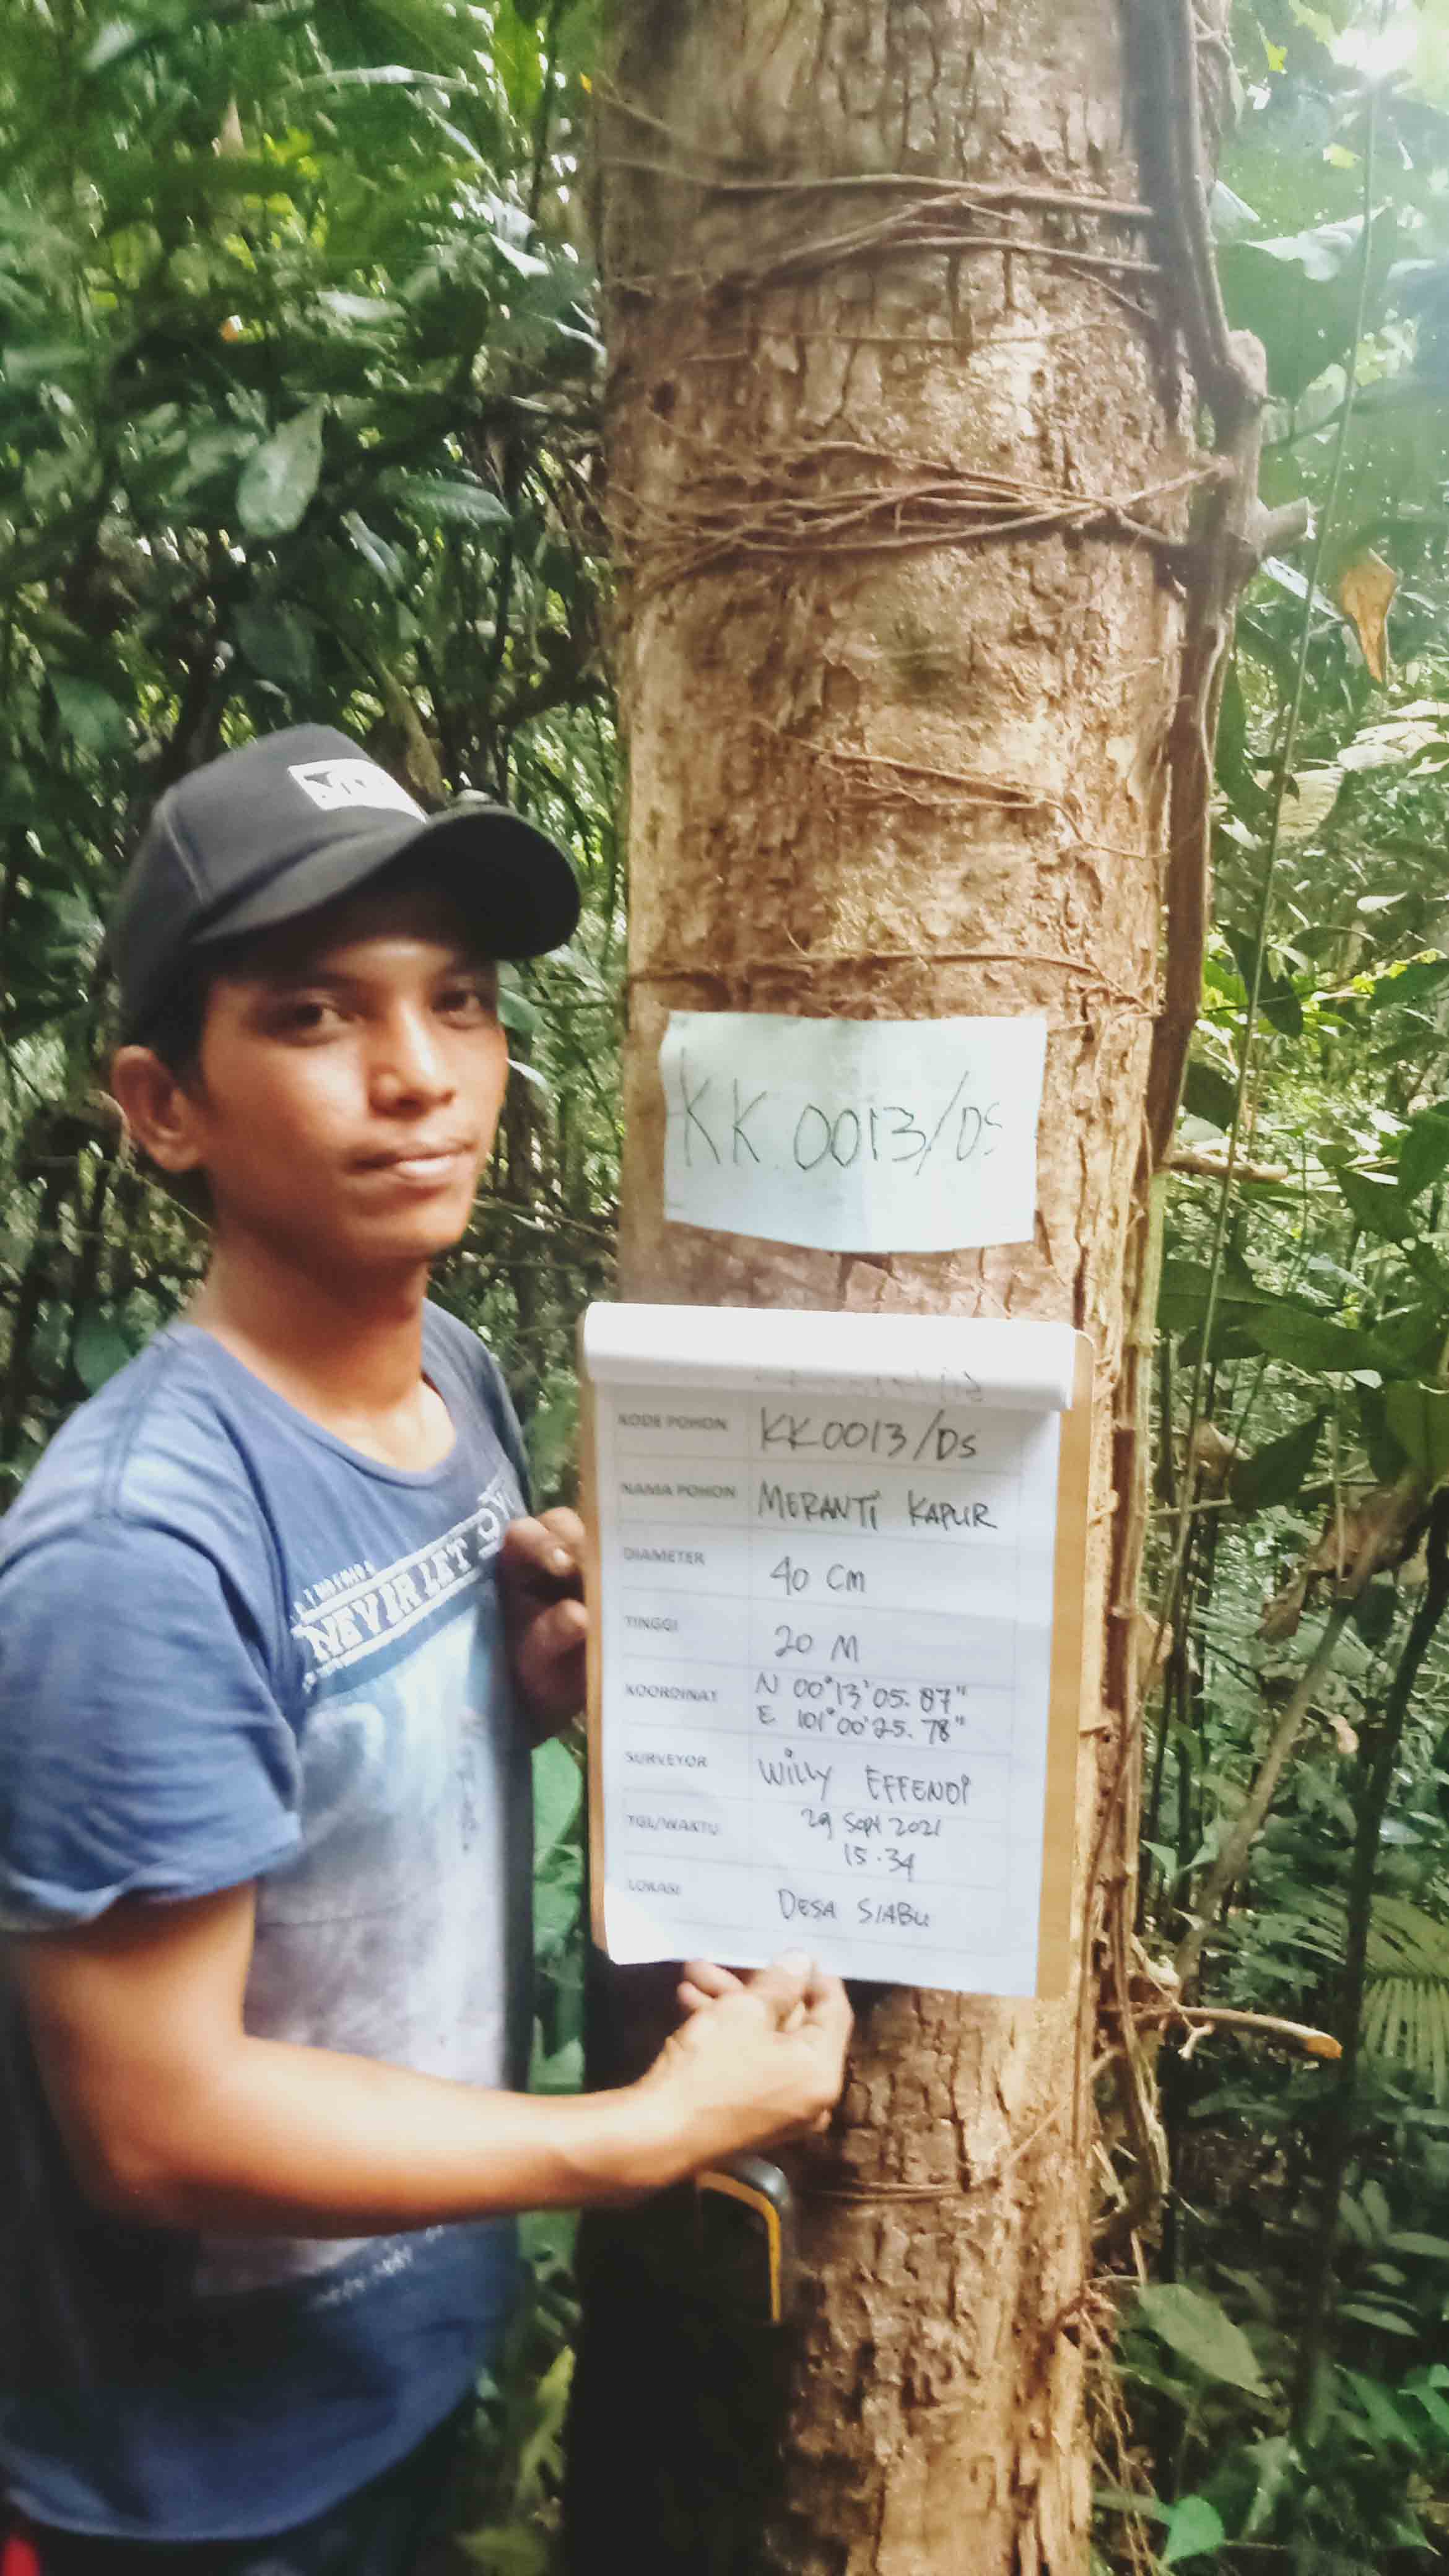 KK 0013/DS
KODE POHON KK0013/DS
NAMA POHON MERANTI KAPUR
DIAMETER 40 cm
TINGGI 20 M
KOORDINAT N 00°13'05.87"
E 101°00'25.78"
SURVEYOR WILLY EFFENDI
TGL/WAKTU 29 Sept 2021
15.34
LOKASI DESA SIABU
NEVER LET